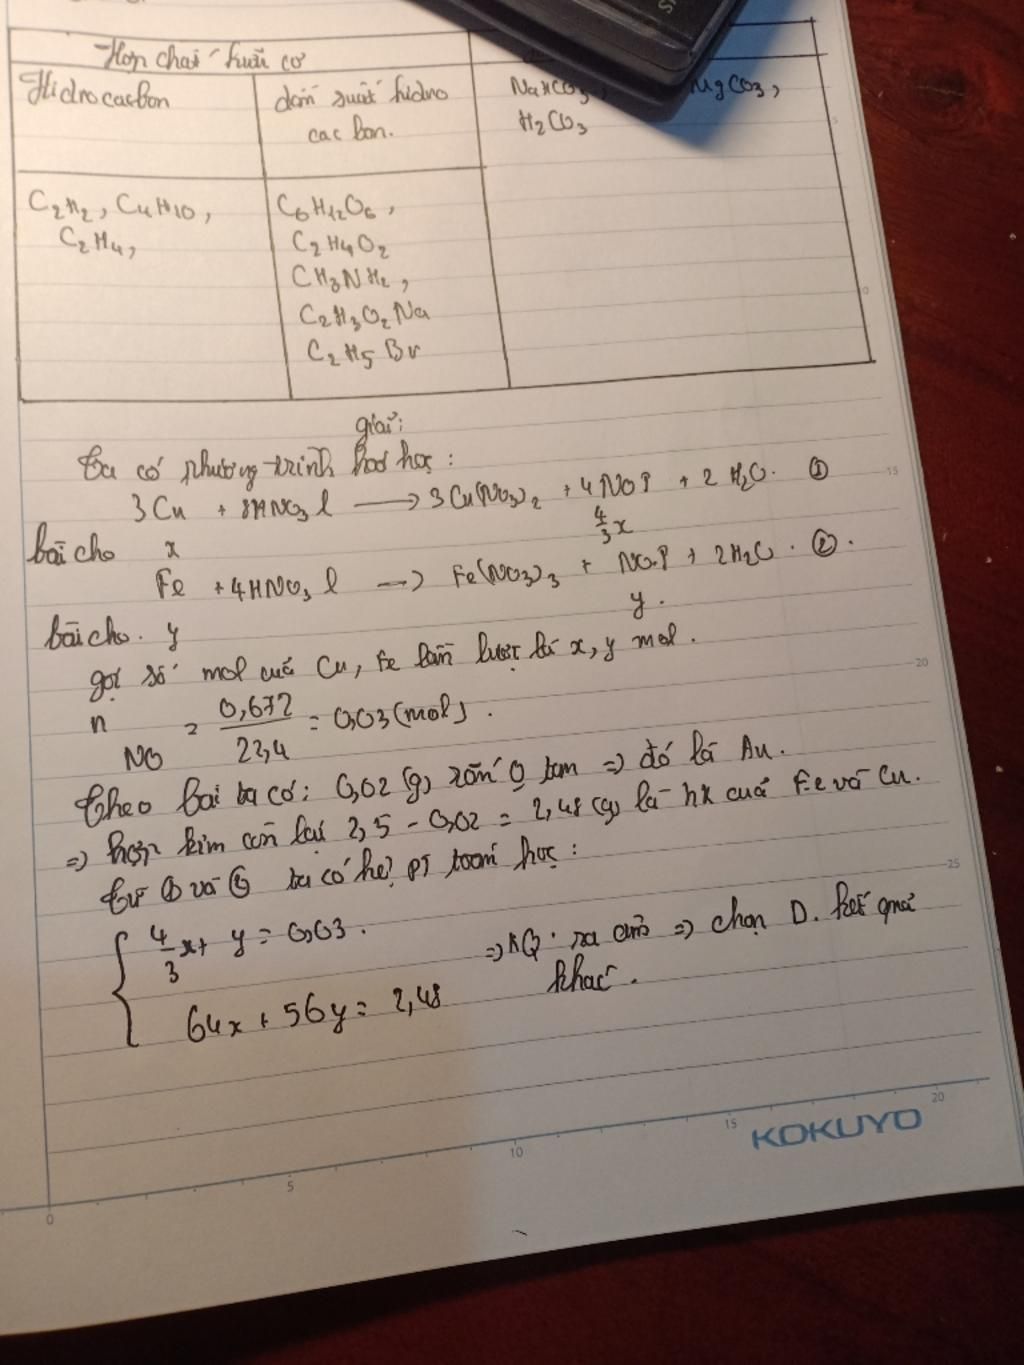 Hợp chất hữu cơ
Hidrocacbon
dẫn xuất hidro
cac bon.
NaHCO3, MgCO3,
H2CO3
C2H2, C4H10,
C2H4,
C6H12O6,
C2H4O2
CH3NH2,
C2H3O2Na
C2H5Br
giải:
Ta có phương trình hoá học:
3Cu + 8HNO3 l → 3Cu(NO3)2 + 4NO↑ + 2H2O. ①
bài cho x 4/3x
Fe + 4HNO3 l → Fe(NO3)3 + NO↑ + 2H2O. ②.
bài cho. y y.
gọi số mol của Cu, Fe lần lượt là x, y mol.
n NO = 0,672/22,4 = 0,03 (mol).
Theo bài ta có: 0,02 (g) rắn ko tan => đó là Au.
=> hợp kim còn lại 2,5 - 0,02 = 2,48 (g) là hx của Fe và Cu.
Từ ① và ② ta có hệ pt toán học:
4/3x + y = 0,03.
=> KQ: ra âm => chọn D. kết quả
khác.
64x + 56y = 2,48
5
0
15
20
25
0
5
10
15
20
KOKUYO